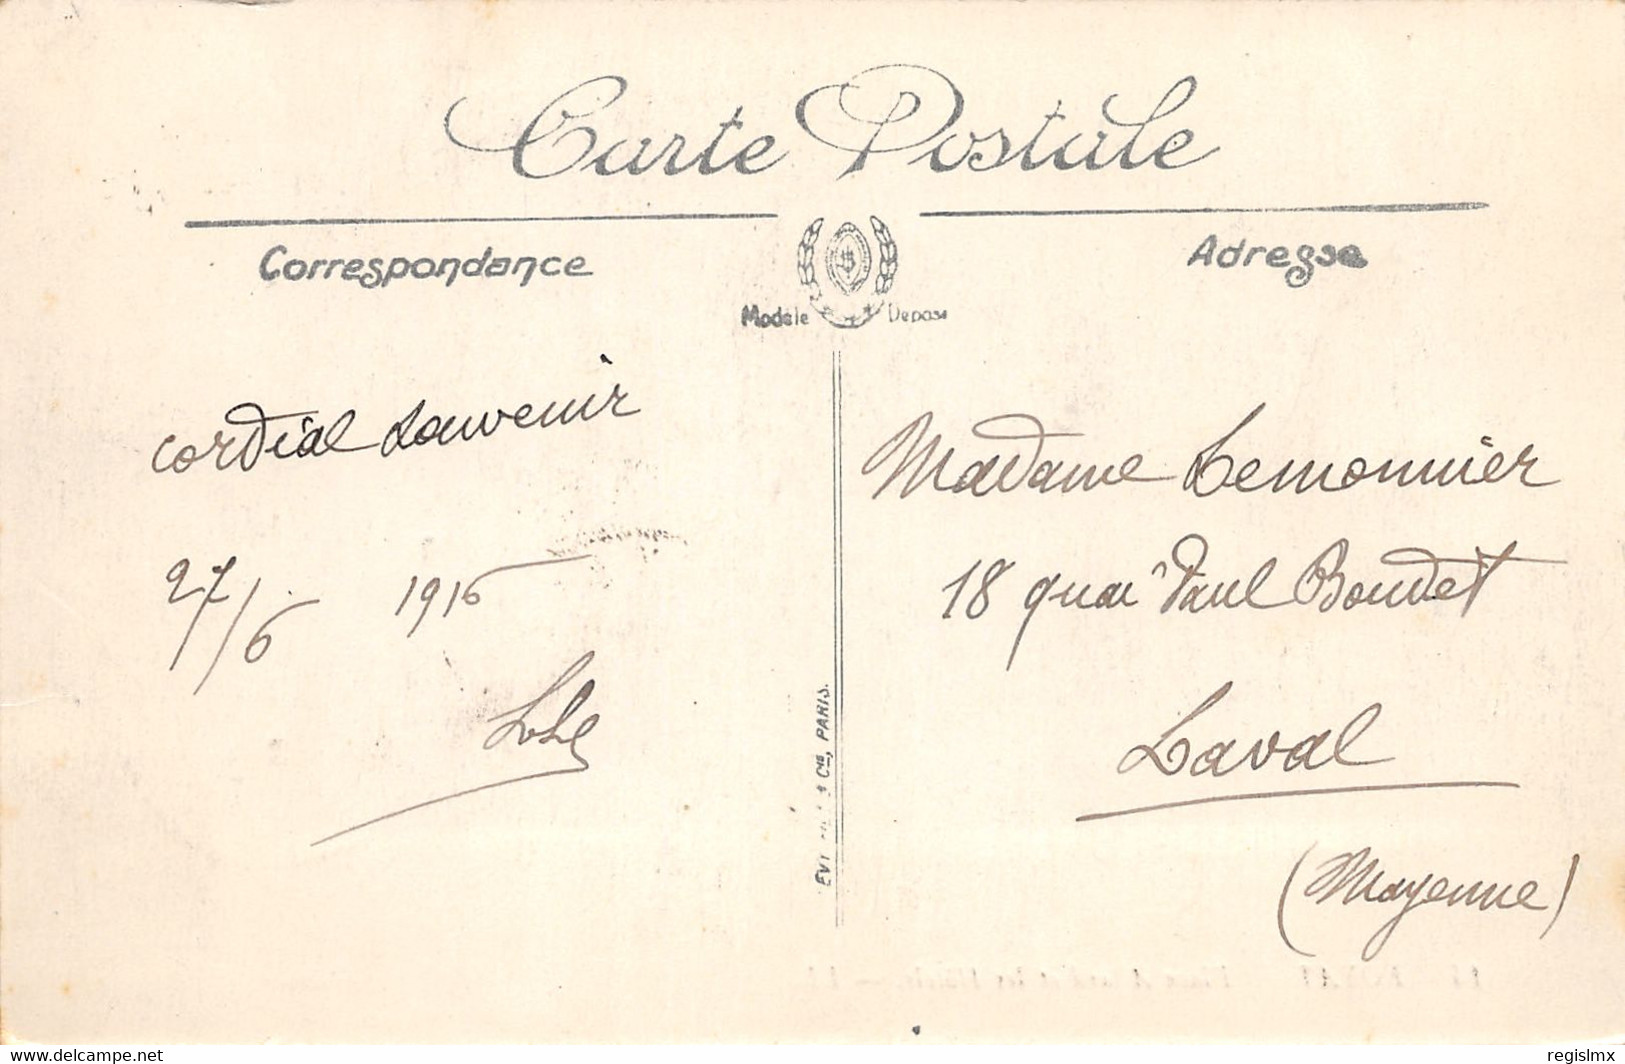 Carte Postale
Correspondance
Adresse
Modèle Déposé
cordial souvenir
27/6 1916
Madame Lemonnier
18 quai Paul Boudet
Laval
(Mayenne)
& Cie, PARIS.
www.delcampe.net
regislmx